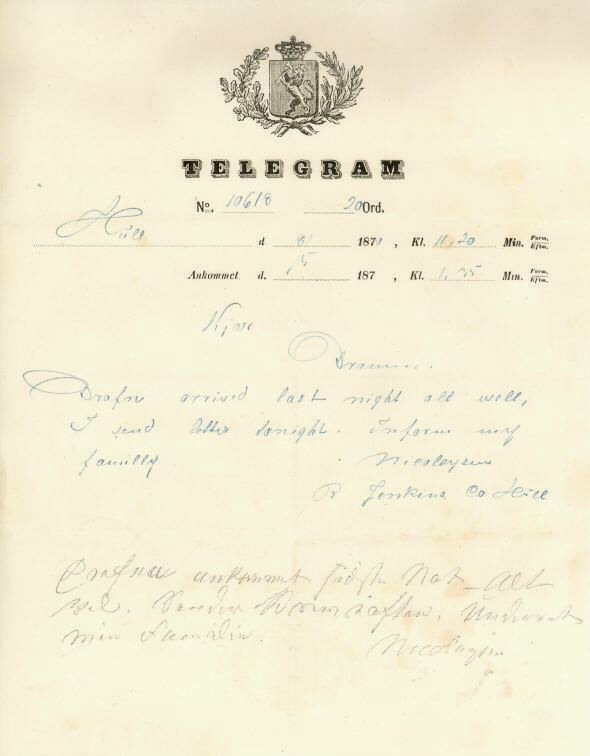 TELEGRAM
No. 10618 20 Ord.
Hull d 8 187 , Kl. 11,20 Min. Form. Eftm.
Ankommet d. 187 , Kl. 1,35 Min. Form. Eftm.
Kjær
Dramm..
Drafn arrived last night all well,
I send letter tonight. Inform my
familly Nicolaysen
Jenkins Co Hull
ankommet sidste Nat Alt
vel. iaften. Underret
min Familie.
Nicolaysen